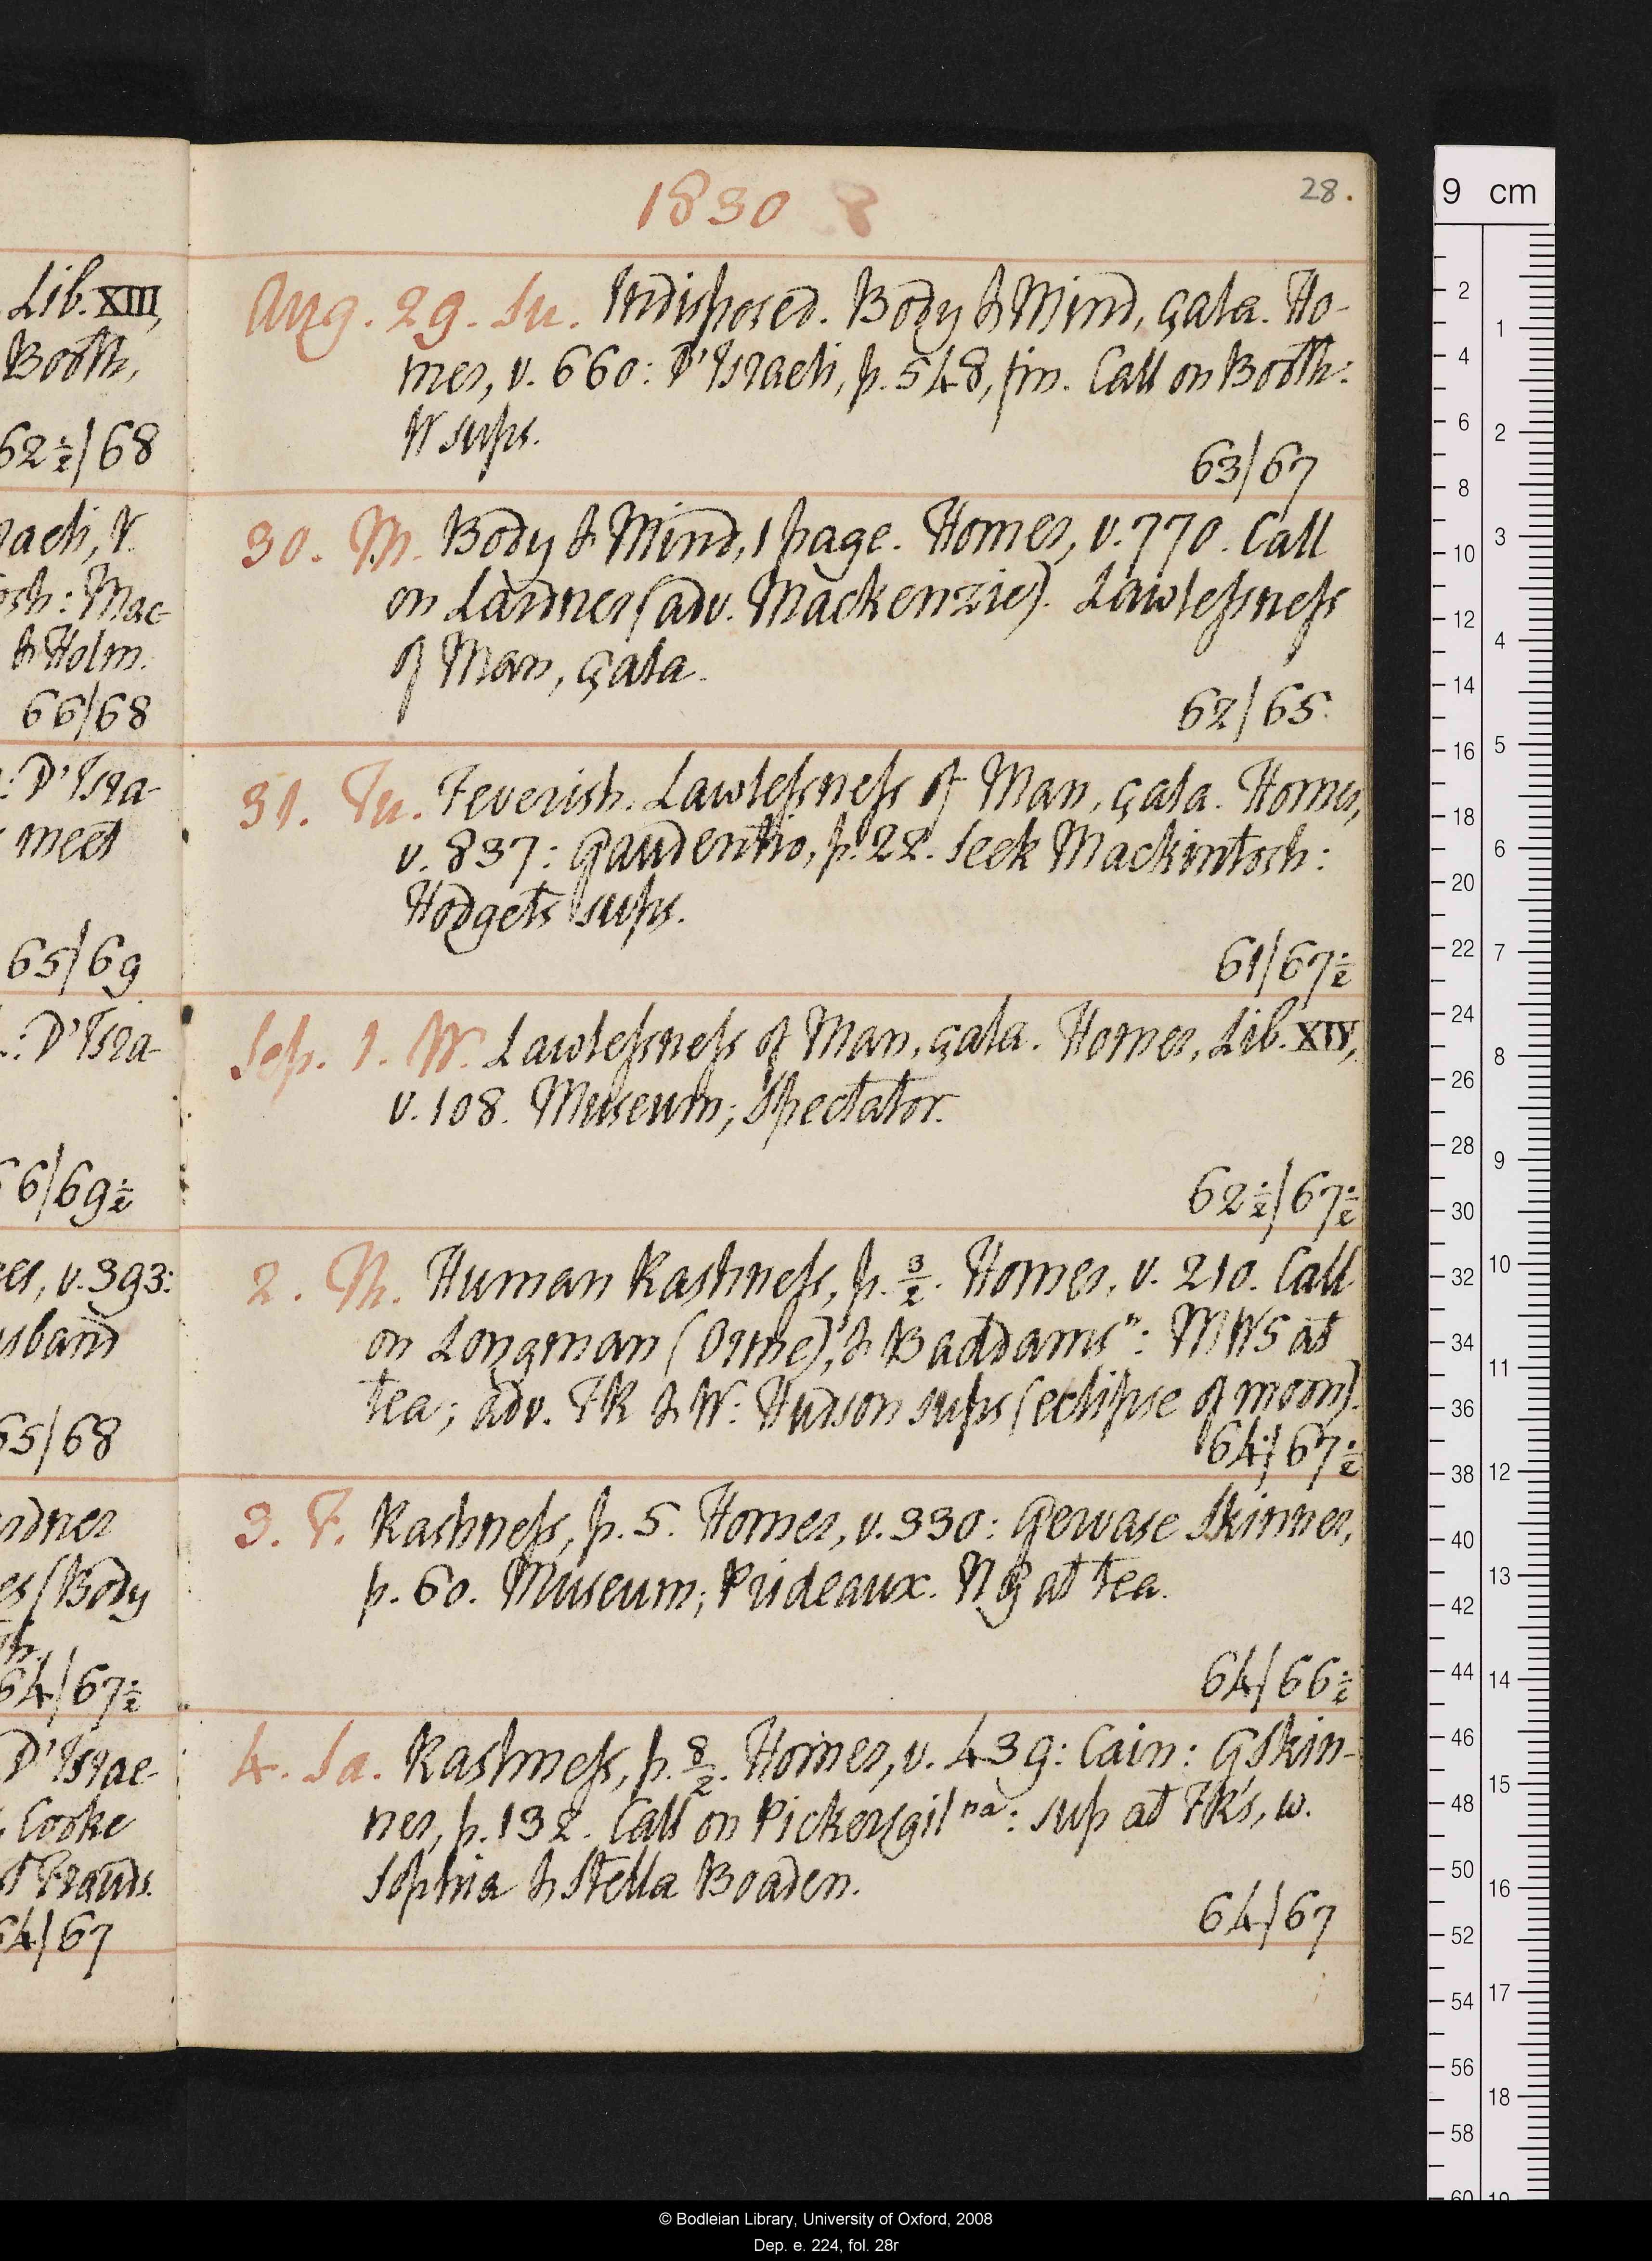 1830
28.
Lib. XIII,
Booth,
62½/68
raeli, V.
osh: Mac-
& Holm.
66/68
: D'Isra-
meet
65/69
: D'Isra-
66/69½
v. 393:
usband
65/68
rdner
es (Body
64/67½
D'Israe-
Cooke
64/67
Aug. 29. Su. Indisposed. Body & Mind, çala. Ho-
mer, v. 660: D'Israeli, p. 548, fin. Call on Booth:
W sups.
63/67
30. M. Body & Mind, 1 page. Homer, v. 770. Call
on Lardner (adv. Mackenzie). Lawlessness
of Man, çala.
62/65
31. Tu. Feverish. Lawlessness of Man, çala. Homer,
v. 837: Gaudentio, p. 22. Seek Mackintosh:
Hodgets sups.
61/67½
Sep. 1. W. Lawlessness of Man, çala. Homer, Lib. XIV,
v. 108. Museum; Spectator.
62½/67½
2. Th. Human Rashness, p. 3/2. Homer, v. 210. Call
on Longman (Orme), & Baddams": MWS at
tea; adv. FK & W: Hudson sups (eclipse of moon).
64/67½
3. F. Rashness, p. 5. Homer, v. 330: Gervase Skinner,
p. 60. Museum; Prideaux. NG at tea.
64/66½
4. Sa. Rashness, p. 8/2. Homer, v. 439: Cain: G Skin-
ner, p. 132. Call on Pickersgil na: sup at FK's, w.
Sophia & Stella Boaden.
64/67
9 cm
© Bodleian Library, University of Oxford, 2008
Dep. e. 224, fol. 28r